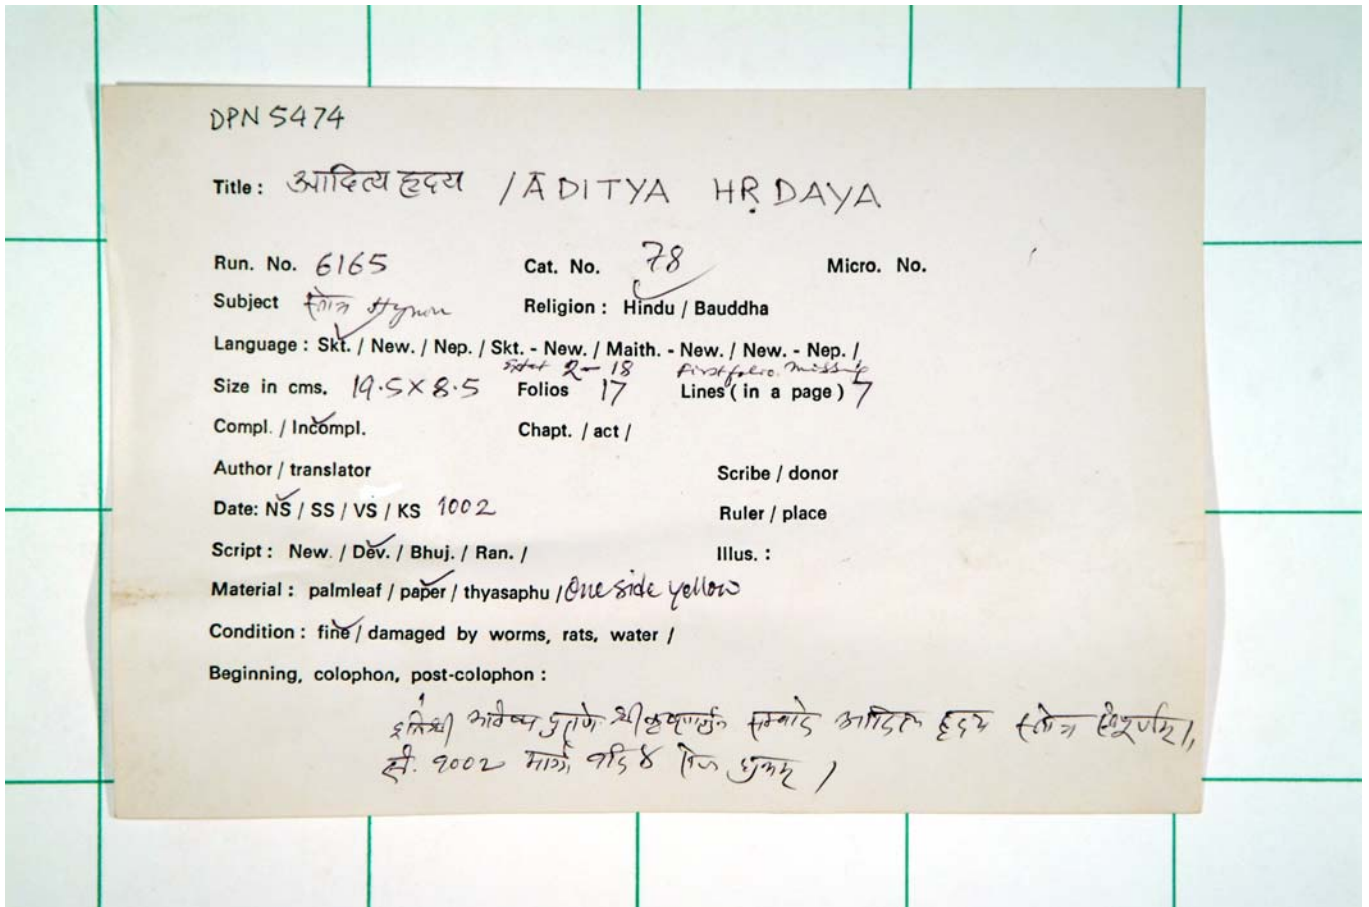 DPN 5474
Title: आदित्य हृदय / ĀDITYA HṚDAYA
Run. No. 6165 Cat. No. 78 Micro. No.
Subject स्तोत्र Hymn Religion: Hindu / Bauddha
Language: Skt. / New. / Nep. / Skt. - New. / Maith. - New. / New. - Nep. /
2-18 First folio missing
Size in cms. 19.5 X 8.5 Folios 17 Lines (in a page) 7
Compl. / Incompl. Chapt. / act /
Author / translator Scribe / donor
Date: NS / SS / VS / KS 1002 Ruler / place
Script: New. / Dev. / Bhuj. / Ran. / Illus.:
Material: palmleaf / paper / thyasaphu / One side yellow
Condition: fine / damaged by worms, rats, water /
Beginning, colophon, post-colophon:
इतिश्री भविष्य पुराणे श्री कृष्णार्जुन सम्वादे आदित्य हृदय स्तोत्र संपूर्णम्॥
सं. १००२ मार्ग वदि ४ शुभम् /